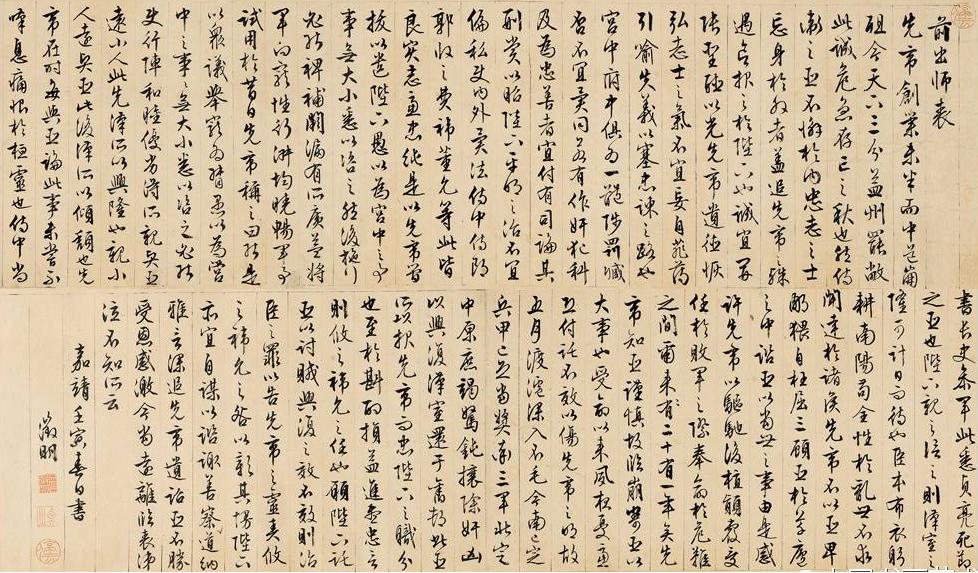 前出師表
先帝創業未半而中道崩
殂今天下三分益州罷敝
此誠危急存亡之秋也然侍
衛之臣不懈於內忠志之士
忘身於外者蓋追先帝之殊
遇欲報之於陛下也誠宜開
張聖聽以光先帝遺德恢
弘志士之氣不宜妄自菲薄
引喻失義以塞忠諫之路也
宮中府中俱為一體陟罰臧
否不宜異同若有作奸犯科
及為忠善者宜付有司論其
刑賞以昭陛下平明之治不宜
偏私使內外異法侍中侍郎
郭攸之費禕董允等此皆
良實志慮忠純是以先帝簡
拔以遺陛下愚以為宮中之事
事無大小悉以咨之然後施行
必能裨補闕漏有所廣益將
軍向寵性行淑均曉暢軍事
試用於昔日先帝稱之曰能是
以眾議舉寵為督愚以為營
中之事事無大小悉以咨之必能
使行陣和睦優劣得所親賢臣
遠小人此先漢所以興隆也親小
人遠賢臣此後漢所以傾頹也先
帝在時每與臣論此事未嘗不
嘆息痛恨於桓靈也侍中尚
書長史參軍此悉貞亮死節
之臣也陛下親之信之則漢室之
隆可計日而待也臣本布衣躬
耕南陽苟全性於亂世不求
聞達於諸侯先帝不以臣卑
鄙猥自枉屈三顧臣於草廬
之中諮臣以當世之事由是感
許先帝以驅馳後值傾覆受
任於敗軍之際奉命於危難
之間爾來二十有一年矣先
帝知臣謹慎故臨崩寄臣以
大事也受命以來夙夜憂慮
恐付託不效以傷先帝之明故
五月渡瀘深入不毛今南方已定
兵甲已足當獎率三軍北定
中原庶竭駑鈍攘除奸凶
以興復漢室還于舊都此臣
所以報先帝而忠陛下之職分
也至於斟酌損益進盡忠言
則攸之禕允之任也願陛下託
臣以討賊興復之效不效則治
臣之罪以告先帝之靈責攸
之禕允之咎以彰其慢陛下
亦宜自謀以諮諏善道察納
雅言深追先帝遺詔臣不勝
受恩感激今當遠離臨表涕
泣不知所云
嘉靖壬寅春日書
徵明